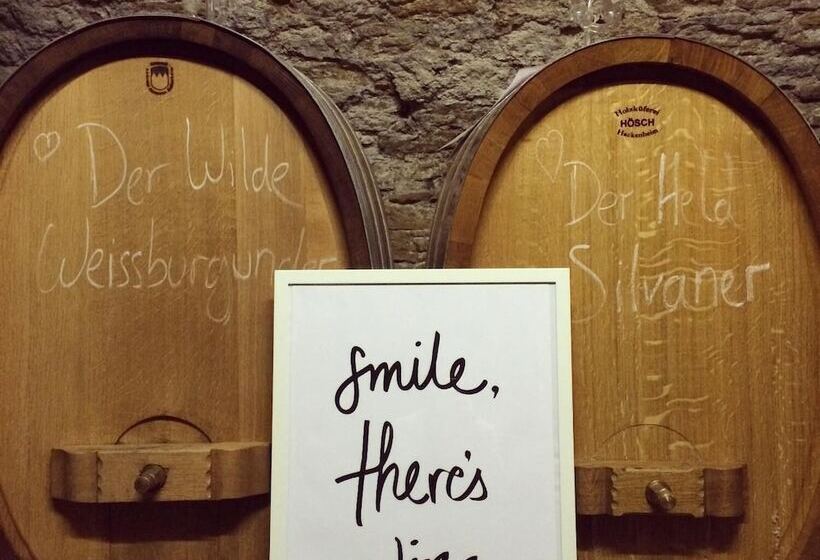 Der Wilde
Weissburgunder
Holzküferei
HÖSCH
Hackenheim
Der Hela
Silvaner
smile,
there's